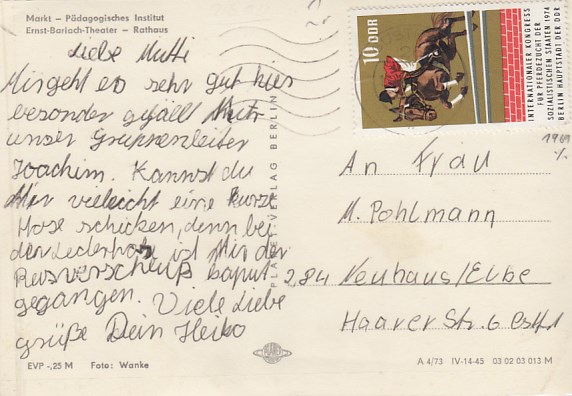 Markt – Pädagogisches Institut
Ernst-Barlach-Theater – Rathaus
Liebe Mutti
Mir geht es sehr gut hier
besonder gefällt Mir
unser Gruppenleiter
Joachim. Kannst du
Mir vieleicht eine kurze
Hose schicken, denn bei
der Lederhose ist Mir der
Reisverschluß kaput
gegangen. Viele liebe
grüße Dein Heiko
EVP -,25 M Foto: Wanke
PLANET-VERLAG BERLIN
PLANET
10 DDR
INTERNATIONALER KONGRESS
FÜR PFERDEZUCHT DER
SOZIALISTISCHEN STAATEN 1974
BERLIN HAUPTSTADT DER DDR
1969
An Frau
M. Pohlmann
284 Neuhaus/Elbe
Haarer Str. 6
A 4/73 IV-14-45 03 02 03 013 M